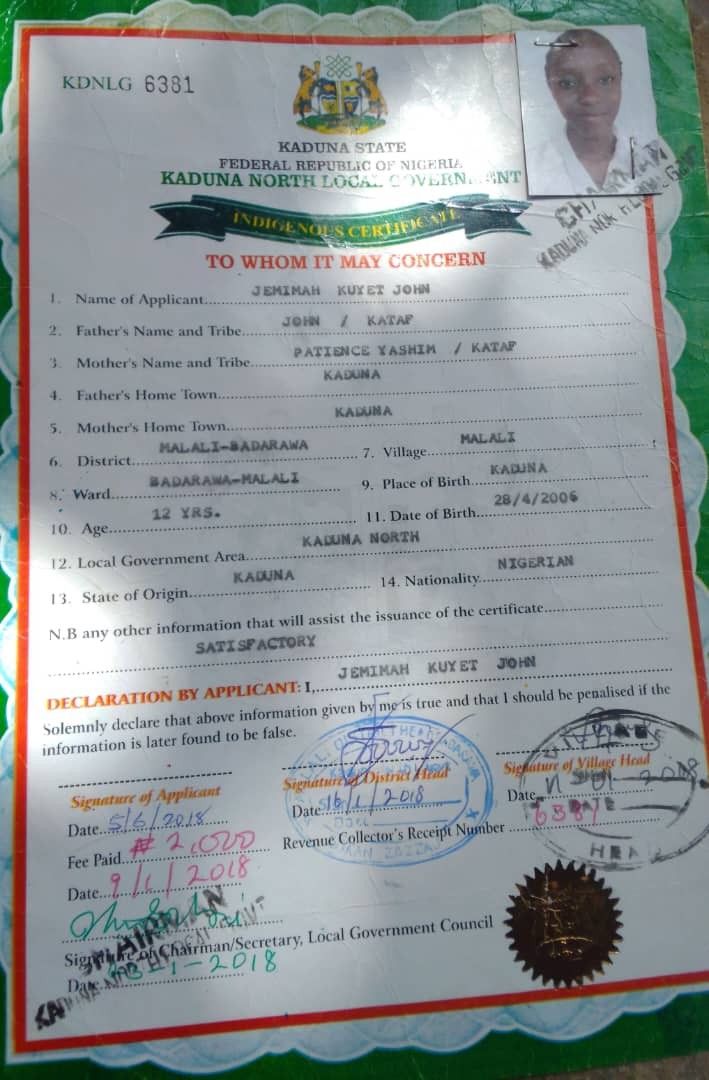 KDNLG 6381
KADUNA STATE
FEDERAL REPUBLIC OF NIGERIA
KADUNA NORTH LOCAL GOVERNMENT
INDIGENOUS CERTIFICATE
TO WHOM IT MAY CONCERN
CHAIRMAN
1. Name of Applicant JEMIMAH KUYET JOHN
2. Father's Name and Tribe JOHN / KATAF
3. Mother's Name and Tribe PATIENCE YASHIM / KATAF
4. Father's Home Town KADUNA
5. Mother's Home Town KADUNA
6. District MALALI-BADARAWA 7. Village MALALI
8. Ward BADARAWA-MALALI 9. Place of Birth KADUNA
10. Age 12 YRS. 11. Date of Birth 28/4/2006
12. Local Government Area KADUNA NORTH
13. State of Origin KADUNA 14. Nationality NIGERIAN
N.B any other information that will assist the issuance of the certificate
SATISFACTORY
DECLARATION BY APPLICANT: I, JEMIMAH KUYET JOHN
Solemnly declare that above information given by me is true and that I should be penalised if the
information is later found to be false.
Signature of Applicant Signature of District Head Signature of Village Head
Date 5/6/2018 Date 2018 Date 2018
Fee Paid ₦ 2,000 Revenue Collector's Receipt Number 6381
Date 9/1/2018
HEAD
CHAIRMAN
Signature of Chairman/Secretary, Local Government Council
Date -1-2018